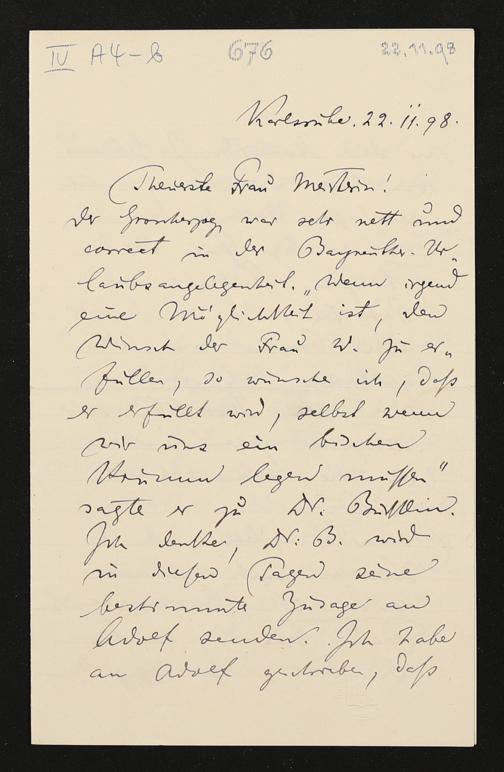 IV A4-6 676 22.11.98
Karlsruhe. 22. 11. 98.
Theuerste Frau Meisterin!
der Grossherzog war sehr nett und
correct in der Bayreuther-Ur„
laubsangelegenheit. „Wenn irgend
eine Möglichkeit ist, den
Wunsch der Frau W. zu er„
füllen, so wünsche ich, daß
er erfüllt wird, selbst wenn
wir uns ein bischen
krumm legen müssen“
sagte er zu Dr. Bürklin.
Ich denke, Dr. B. wird
in diesen Tagen seine
bestimmte Zusage an
Adolf senden. Ich habe
an Adolf geschrieben, daß